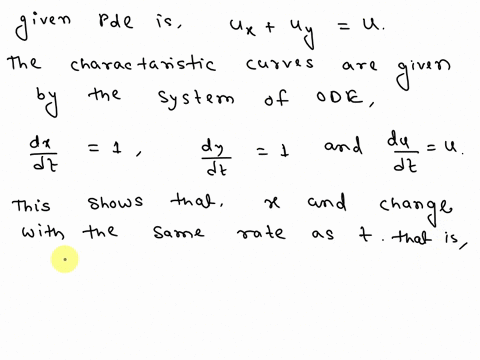 given Pde is, u_x + u_y = u.
The charactaristic curves are given
by the system of ODE,
dx/dt = 1, dy/dt = 1 and du/dt = u.
This shows that, x and change
with the same rate as t. that is,